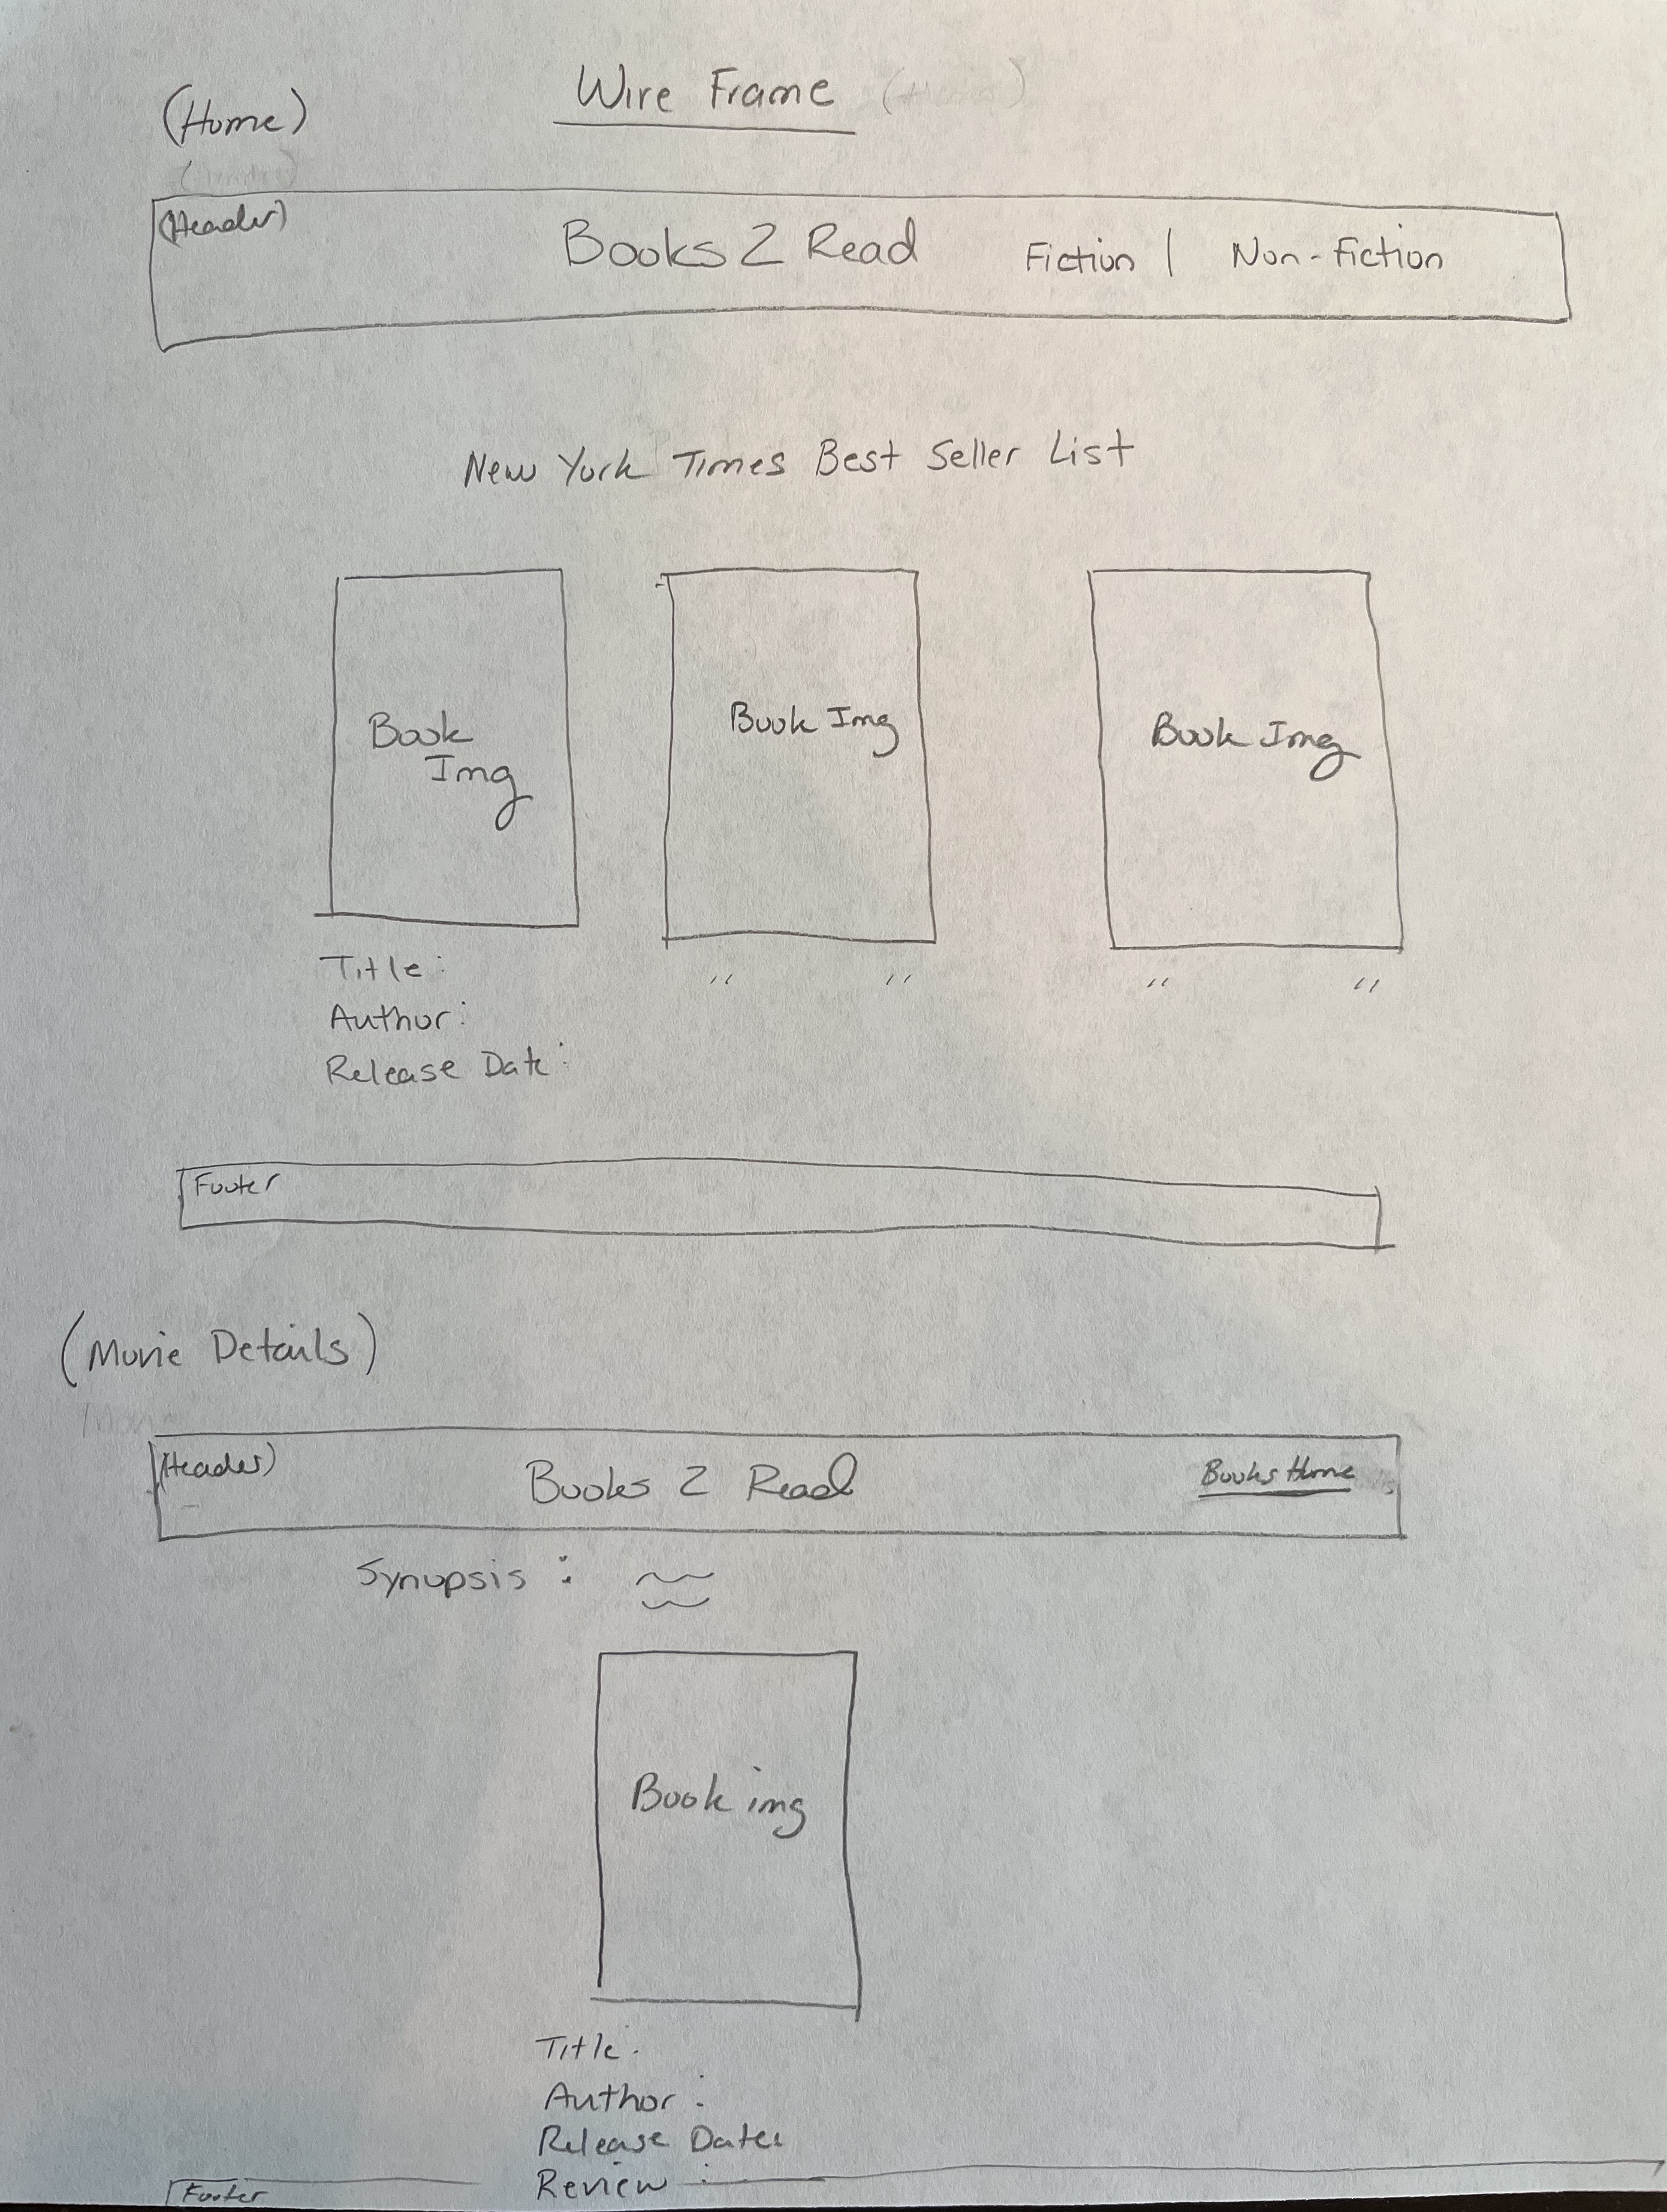 (Home)
Wire Frame
(Header)
Books 2 Read
Fiction | Non-Fiction
New York Times Best Seller List
Book
Img
Book Img
Book Img
Title:
" "
" "
Author:
Release Date:
Footer
(Movie Details)
(Header)
Books 2 Read
Books Home
Synopsis :
Book img
Title:
Author:
Release Date:
Review :
Footer